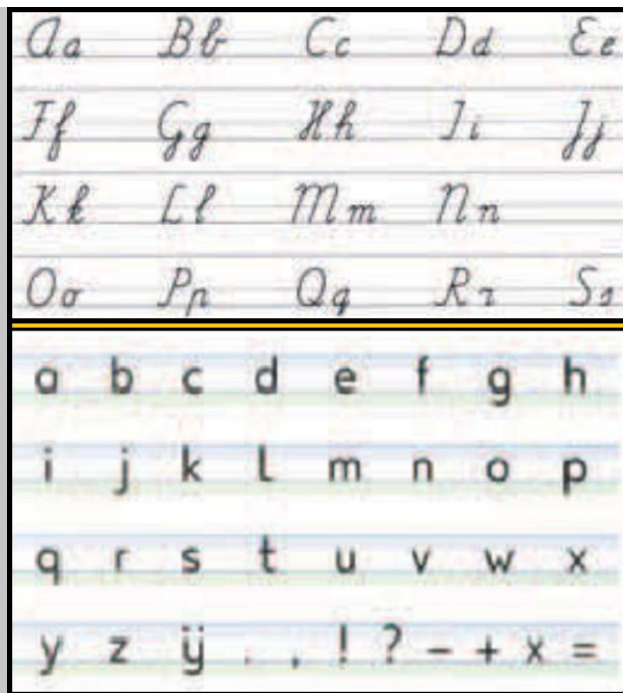 Aa Bb Cc Dd Ee
Ff Gg Hh Ii Jj
Kk Ll Mm Nn
Oo Pp Qq Rr Ss
a b c d e f g h
i j k l m n o p
q r s t u v w x
y z ÿ . , ! ? - + x =